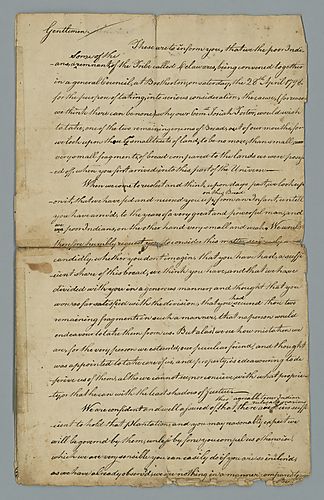 Gentlemen
These are to inform you, that we the poor Indi-
ans,
Some of the
a remnant of the Tribe called Delawares, being convened together
in a general Council, at Brotherton, on saturday, the 28th April 1796.
for the purpose of taking into serious consideration, the cause, or reason
we think there can be none, why our Commissioner would wish
to take, one of the two remaining crumbs of Bread, out of our mouths, for
we look upon those small tracts of land, to be no more, than small,
very small fragments of bread compared to the lands we were possess-
ed off, when you first arrived into this part of the Universe
When we come to reflect and think upon days past, we look up-
on it that we have fed and nursed you up from an Infant, untill
on this Bread
you have arrived, to the years of a very great and powerful man, and
we poor Indians, on the other hand very small and weak. We would
therefore humbly request you to consider this matter
candidly, whether you dont imagine that you have had, a suffi-
cient share of this bread, we think you have, and that we have
divided with you in a generous manner, and thought that you
was so far satisfied with this division, that you had secured those two
remaining fragments in such a manner, that no person would
endeavour to take them from us. But alas! we see how mistaken we
are, for the very person we esteemed our peculiar friend, and thought
was appointed to take care of us, and property, is endeavouring to de-
prive us of them, altho we cannot see, nor conceive with what proprie-
ty, or that he can with the least shadow of Justice
We are confident and well assured of that, there are Laws suffi-
cient to hold that Plantation, and you may reasonably expect we
will be governed by them, unless by force you compel us otherwise
which we are very sensible you can easily do if you are so inclined
as we have already observed we are nothing in a manner, compared to